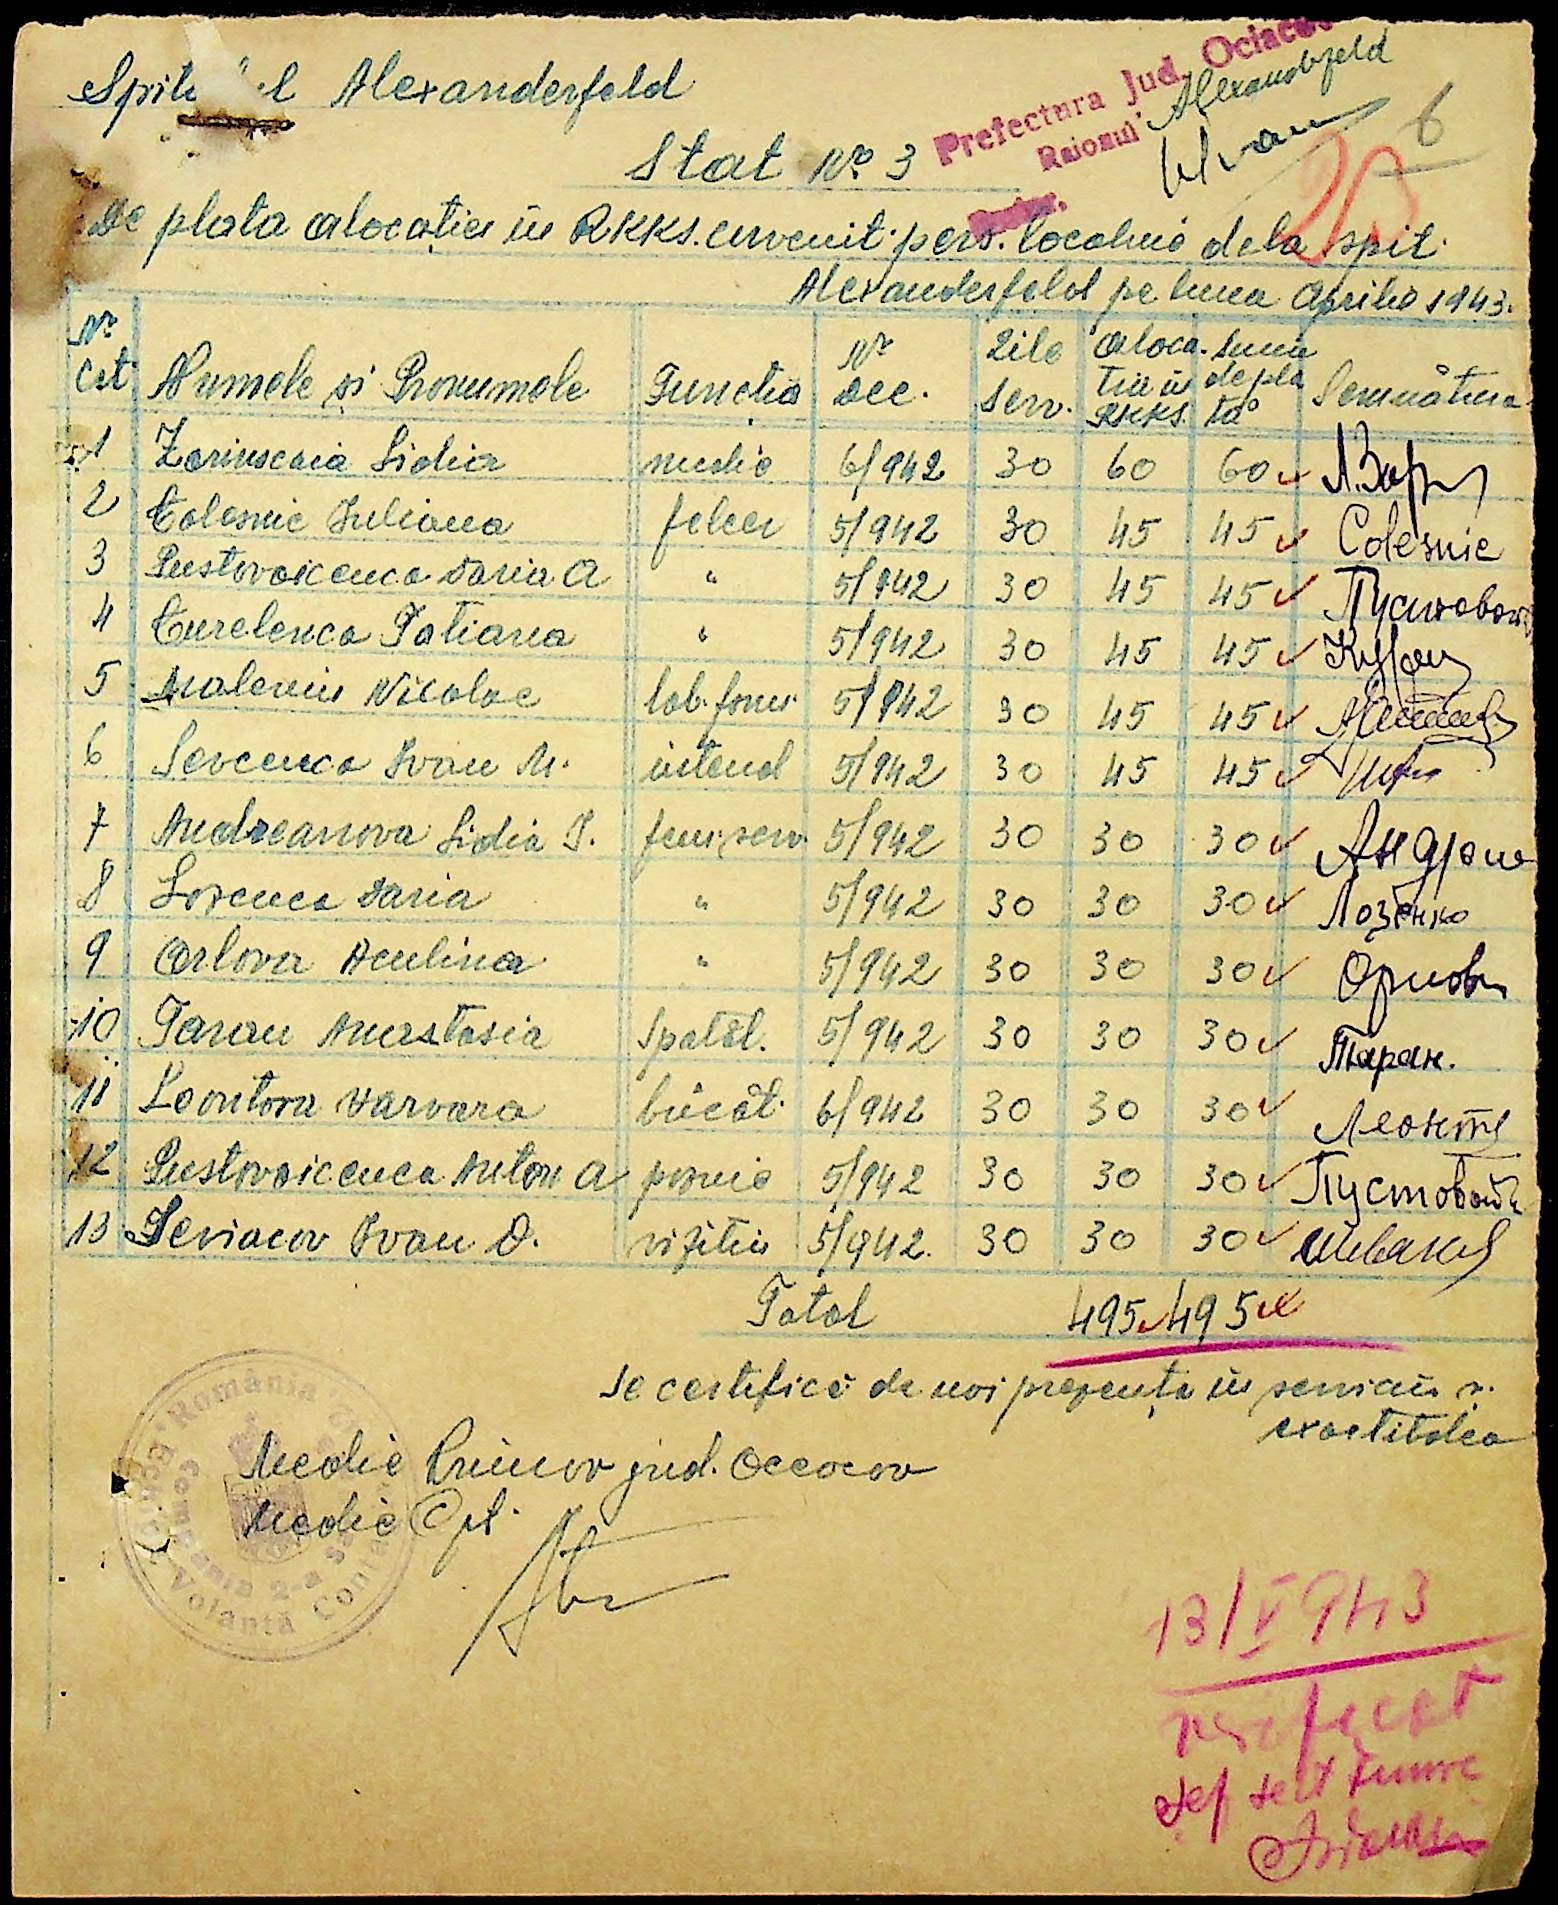 Spitalul Alexanderfeld
Prefectura Jud. Ociacov
Raionul Alexanderfeld
6
Stat No. 3
De plata alocației în RKKS. cuvenit pers. localnic dela spit.
Alexanderfeld pe luna Aprilie 1943.
Nr. Crt Numele și Pronumele Funcția Nr. Dec. Zile Serv. Alocația în RKKS. Suma de plată Semnătura
1 Zarinscaia Lidia medic 6/942 30 60 60 Л.Зар
2 Colesnic Iuliana felcer 5/942 30 45 45 Colesnic
3 Pustovoicenco Daria A " 5/942 30 45 45 Пустовой
4 Curelenco Tatiana " 5/942 30 45 45
5 Malenin Nicolae lab. farm. 5/942 30 45 45
6 Sevcenco Ivan M. intend 5/942 30 45 45
7 Andreanova Lidia I. fem. serv. 5/942 30 30 30 Андрон
8 Lozenco Daria " 5/942 30 30 30 Лозенко
9 Orlova Aculina " 5/942 30 30 30 Орлов
10 Taran Anastasia spăköt. 5/942 30 30 30 Таран.
11 Leontova Varvara bucăt. 6/942 30 30 30 Леонт
12 Pustovoicenco Anton A paznic 5/942 30 30 30 Пустовой
13 Seviacov Ivan D. vizitiu 5/942. 30 30 30
Total 495 495
Se certifică de noi prezența în serviciu și
exactitatea
Medic Primar jud. Oceacov
Medic Cpt.
România
Compania 2-a
Volantă
13/V 943
verificat
Șef sect